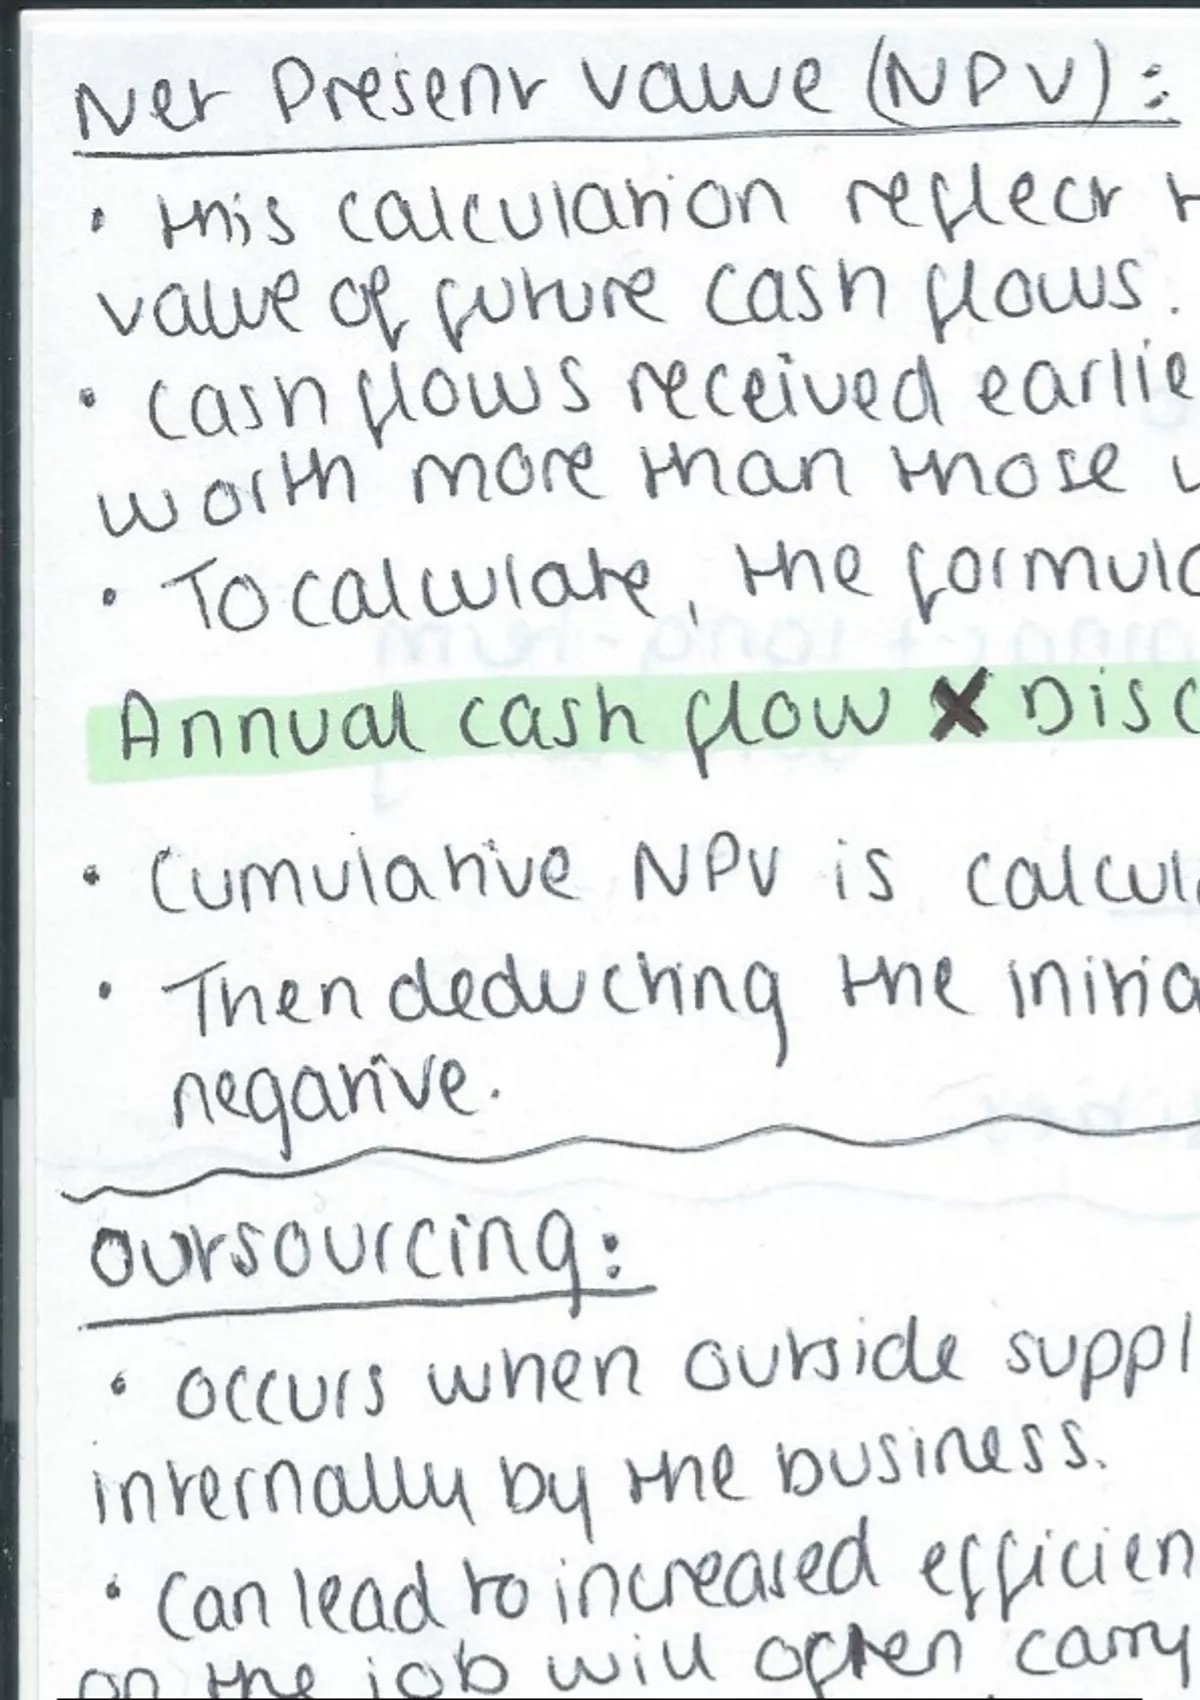 Net Present Value (NPV):
• this calculation reflect t
value of future cash flows.
• Cash flows received earlie
worth more than those w
• To calculate, the formula
Annual cash flow X Disc
• Cumulative NPV is calcula
• Then deducting the initia
negative.
Outsourcing:
• occurs when outside suppl
internally by the business.
• Can lead to increased efficien
on the job will often carry